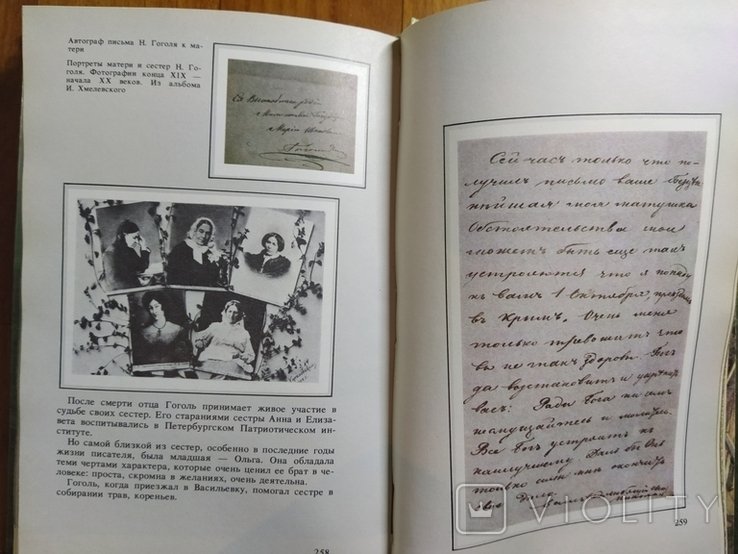 Автограф письма Н. Гоголя к ма-
тери
Портреты матери и сестер Н. Го-
голя. Фотографии конца XIX —
начала XX веков. Из альбома
И. Хмелевского
После смерти отца Гоголь принимает живое участие в
судьбе своих сестер. Его стараниями сестры Анна и Елиза-
вета воспитывались в Петербургском Патриотическом ин-
ституте.
Но самой близкой из сестер, особенно в последние годы
жизни писателя, была младшая — Ольга. Она обладала
теми чертами характера, которые очень ценил ее брат в че-
ловеке: проста, скромна в желаниях, очень деятельна.
Гоголь, когда приезжал в Васильевку, помогал сестре в
собирании трав, кореньев.
258
Сей часъ только что по-
лучилъ письмо ваше
моя матушка
Обстоятельства мои
можетъ быть еще такъ
устроются что я попаду
къ вамъ 1 Октября,
въ Крымъ. Очень меня
только тревожитъ что
вы не такъ здоровы. Богъ
да возстановитъ и
васъ: Ради Бога
Все Богъ устроитъ къ
наилучшему.
только
259
VIOLITY